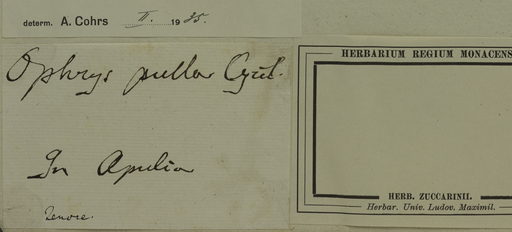 determ. A. Cohrs II. 1935.
Ophrys pulla Cyril.
In Apulia
Tenore.
HERBARIUM REGIUM MONACENS
HERB. ZUCCARINII.
Herbar. Univ. Ludov. Maximil.